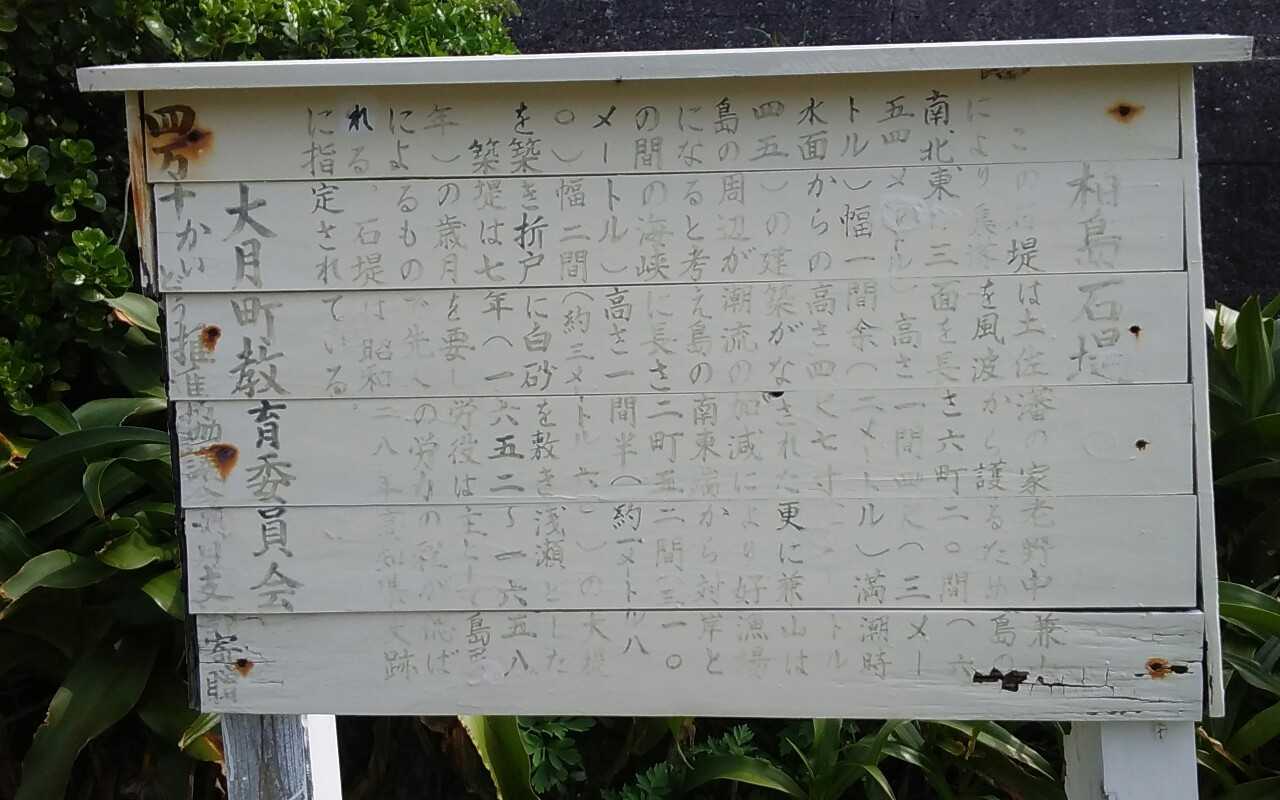 柏島石堤
この石堤は土佐藩の家老野中兼山
により集落を風波から護るため島の
南北東に三面を長さ六町二〇間(六
五四メートル)高さ一間四尺(三メー
トル)幅一間余(二メートル)満潮時
水面からの高さ四尺七寸
四五)の建築がなされた更に兼山は
島の周辺が潮流の加減により好漁場
になると考え島の南東端から対岸と
の間の海峡に長さ二町五二間(三一〇
メートル)高さ一間半(約一メートル八
〇)幅二間(約三メートル六〇)の大堤
を築き折戸に白砂を敷き浅瀬とした
築堤は七年(一六五二〜一六五八
年)の歳月を要し労役は主として島
によるもので先人の労力の
れる。石堤は昭和二八年高知県史跡
に指定されている。
大月町教育委員会
四万十かいどう推進協議会 支 寄贈